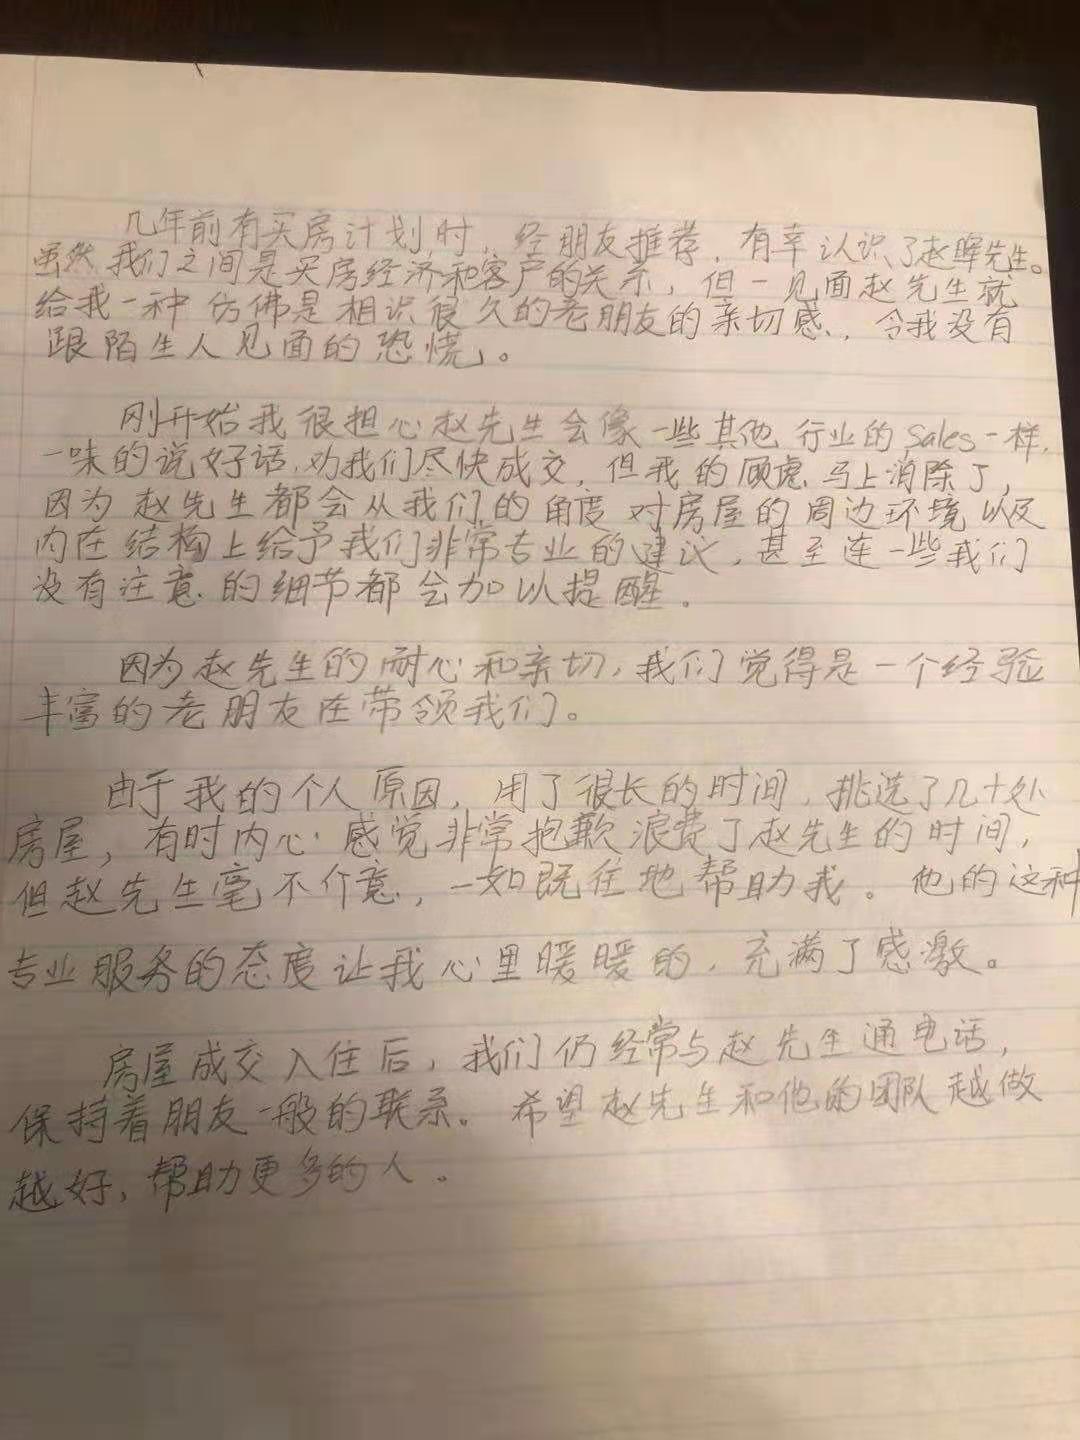 几年前有买房计划时，经朋友推荐，有幸认识了赵晖先生。
虽然我们之间是买房经济和客户的关系，但一见面赵先生就
给我一种仿佛是相识很久的老朋友的亲切感，令我没有
跟陌生人见面的恐慌。
刚开始我很担心赵先生会像一些其他行业的Sales一样，
一味的说好话，劝我们尽快成交，但我的顾虑马上消除了，
因为赵先生都会从我们的角度对房屋的周边环境以及
内在结构上给予我们非常专业的建议，甚至连一些我们
没有注意的细节都会加以提醒。
因为赵先生的耐心和亲切，我们觉得是一个经验
丰富的老朋友在带领我们。
由于我的个人原因，用了很长的时间，挑选了几十处
房屋，有时内心感觉非常抱歉浪费了赵先生的时间，
但赵先生毫不介意，一如既往地帮助我。他的这种
专业服务的态度让我心里暖暖的，充满了感激。
房屋成交入住后，我们仍经常与赵先生通电话，
保持着朋友一般的联系。希望赵先生和他的团队越做
越好，帮助更多的人。